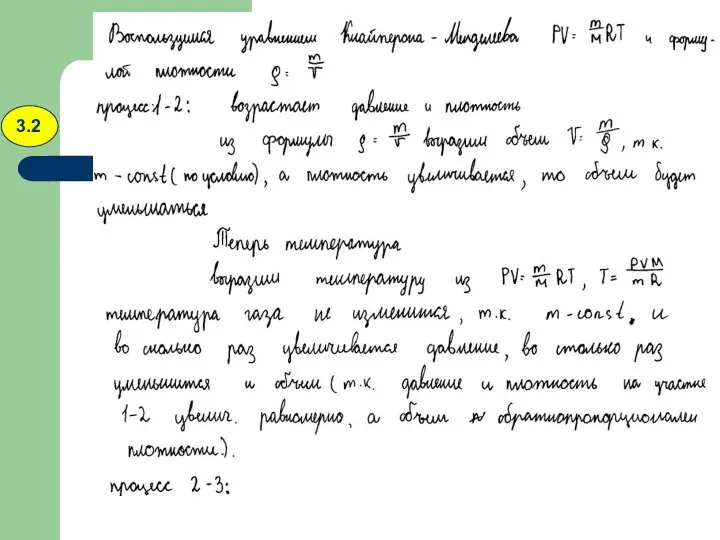 Воспользуемся уравнением Клайперона - Менделеева PV= m/M RT и форму-
лой плотности ρ= m/V
3.2
процесс: 1-2: возрастает давление и плотность
из формулы ρ= m/V выразим объем V= m/ρ, т к.
m - const (по условию), а плотность увеличивается, то объем будет
уменьшаться
Теперь температура
выразим температуру из PV= m/M RT, T= PVM/mR
температура газа не изменится, т.к. m - const. и
во сколько раз увеличивается давление, во столько раз
уменьшится и объем (т.к. давление и плотность на участке
1-2 увелич. равномерно, а объем обратнопропорционален
плотности.).
процесс 2-3: